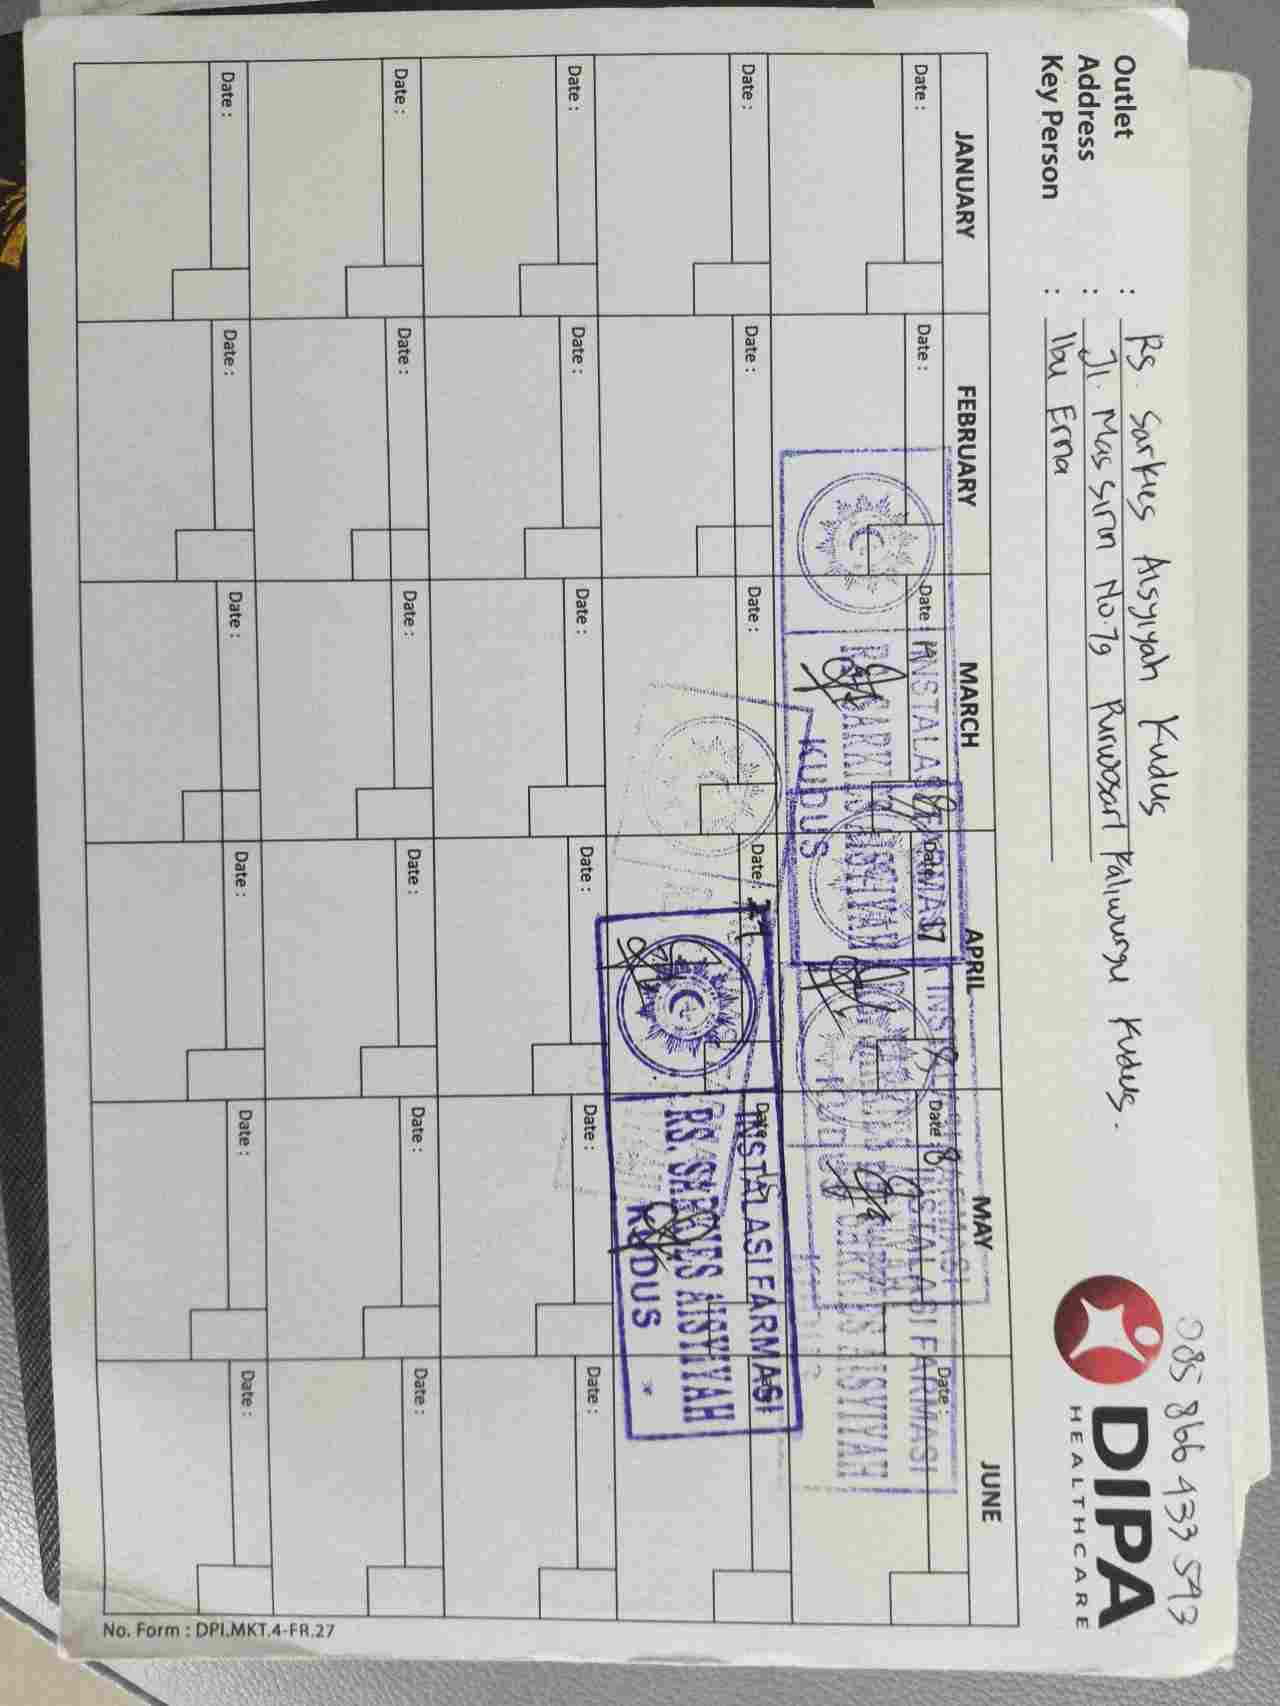 085 866 433 593
DIPA
HEALTHCARE
Outlet : RS. Sarkies Aisyiyah Kudus
Address : Jl. Mas Sirin No.79 Purwosari Kaliwungu Kudus.
Key Person : Ibu Erna
JANUARY FEBRUARY MARCH APRIL MAY JUNE
Date : Date : Date : Date : Date : 8 Date :
INSTALASI FARMASI
RS. SARKIES AISYIYAH
KUDUS
INSTALASI FARMASI
RS. SARKIES AISYIYAH
KUDUS
Date : Date : Date : Date : Date :
INSTALASI FARMASI
RS. SARKIES AISYIYAH
KUDUS
Date : Date : Date : Date : Date : Date :
Date : Date : Date : Date : Date : Date :
Date : Date : Date : Date : Date : Date :
No. Form : DPI.MKT.4-FR.27